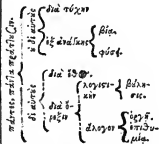 πάντες πάντα πράττουσι.
μὴ δι' αὑτούς
διὰ τύχην
ἐξ ἀνάγκης
βίᾳ.
φύσει.
δι' αὑτούς
διὰ ἔθος.
δι' ὄρεξιν
λογιστικὴν
βούλησις.
ἄλογον
ὀργή.
ἐπιθυμία.